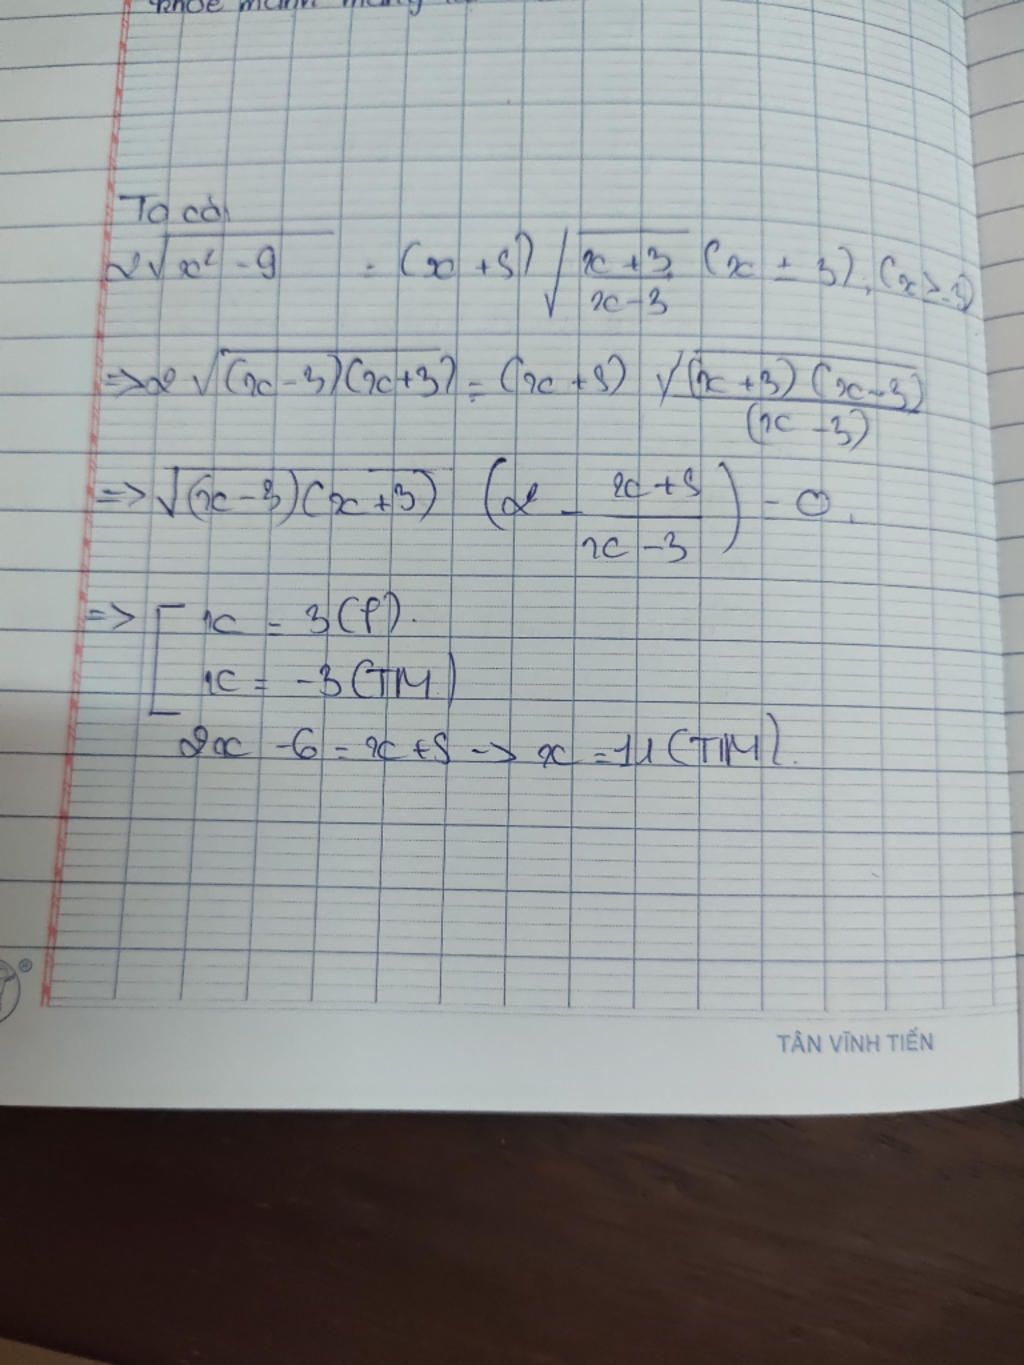 khoẻ mạnh
Ta có
2√(x² - 9) = (x + 5) √((x + 3)/(x - 3)) (x ± 3), (x ≥ -5)
=> 2√((x - 3)(x + 3)) = (x + 5) √((x + 3)(x - 3))/(x - 3)
=> √((x - 3)(x + 3)) (2 - (x + 5)/(x - 3)) = 0.
=> [ x = 3 (l).
x = -3 (TM)
2x - 6 = x + 5 -> x = 11 (TM).
®
TÂN VĨNH TIẾN